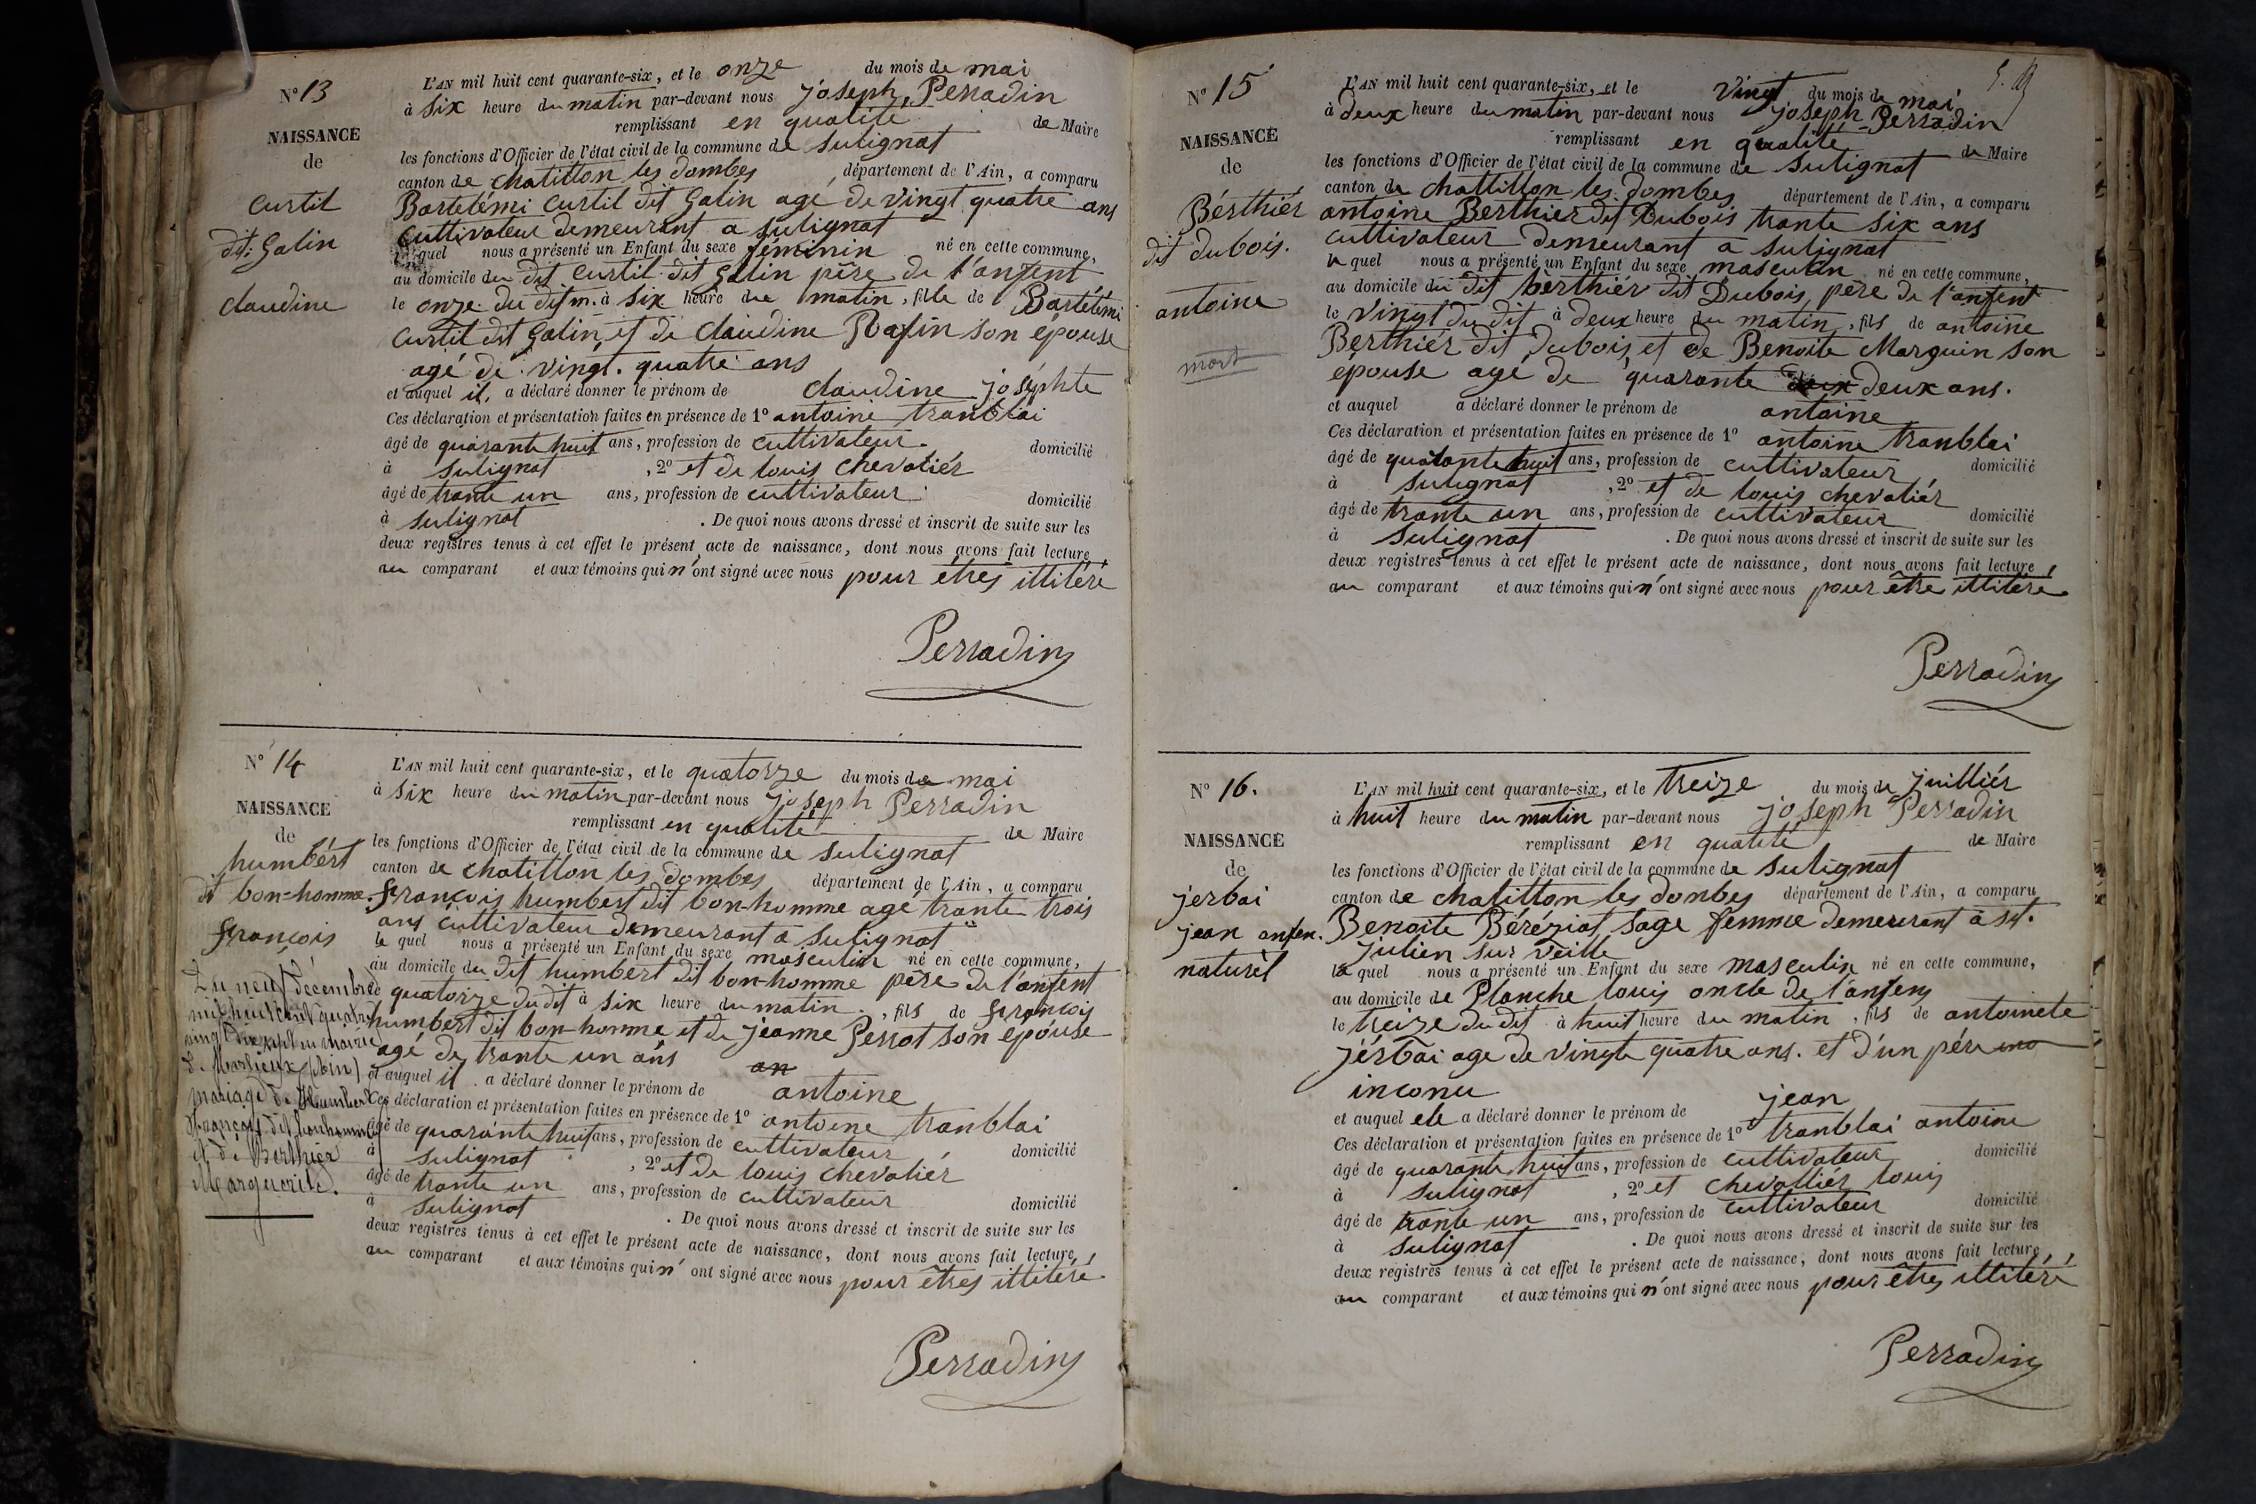 N° 13
NAISSANCE
de
Curtil
dit: Galin
claudine
L'AN mil huit cent quarante-six, et le onze du mois de mai
à six heure du matin par-devant nous joseph Perradin
remplissant en qualité de Maire
les fonctions d'Officier de l'état civil de la commune de Sulignat
canton de chatillon les dombes département de l'Ain, a comparu
Bartelémi Curtil dit Galin agé de vingt quatre ans
Cultivateur demeurant a Sulignat
lequel nous a présenté un Enfant du sexe féminin né en cette commune,
au domicile du dit Curtil dit Galin père de l'anfent
le onze du dit m. à six heure du matin, fille de Bartélémi
Curtil dit Galin et de Claudine Rafin son épouse
agé de vingt. quatre ans
et auquel il, a déclaré donner le prénom de claudine joséphte
Ces déclaration et présentation faites en présence de 1° antoine tranblai
âgé de quarante huit ans, profession de cultivateur. domicilié
à Sulignat, 2° et de louis chevaliér
âgé de trante un ans, profession de cultivateur domicilié
à Sulignat. De quoi nous avons dressé et inscrit de suite sur les
deux registres tenus à cet effet le présent acte de naissance, dont nous avons fait lecture
au comparant et aux témoins qui n'ont signé avec nous pour étres illitéré
Perradin
N° 14
NAISSANCE
de
humbért
dt bon-homme.
françois
Du neuf décembre
mil huit cent quatre
vingt dix sept en mairie
de Marlieux (Ain)
mariage de Humbert
françois dit bonhomme
et de Berthier
Marguerite.
L'AN mil huit cent quarante-six, et le quatorze du mois de mai
à six heure du matin par-devant nous joseph Perradin
remplissant en qualité de Maire
les fonctions d'Officier de l'état civil de la commune de Sulignat
canton de chatillon les dombes département de l'Ain, a comparu
françois humbert dit bon-homme agé trante trois
ans cultivateur demeurant à Sulignat
le quel nous a présenté un Enfant du sexe masculin né en cette commune,
au domicile du dit humbert dit bon-homme père de l'anfent
le quatorze du dit à six heure du matin, fils de françois
humbert dit bon-homme et de jeanne Perrot son epouse
agé de trante un ans
et auquel il a déclaré donner le prénom de an antoine
Ces déclaration et présentation faites en présence de 1° antoine tranblai
âgé de quarante huit ans, profession de cultivateur domicilié
à Sulignat, 2° et de louis chevaliér
âgé de trante un ans, profession de cultivateur domicilié
à Sulignat. De quoi nous avons dressé et inscrit de suite sur les
deux registres tenus à cet effet le présent acte de naissance, dont nous avons fait lecture,
au comparant et aux témoins qui n'ont signé avec nous pour êtres illitéré
Perradin
N° 15
NAISSANCE
de
Bérthiér
dit dubois.
antoine
mort
L'AN mil huit cent quarante-six, et le vingt du mois de mai
à deux heure du matin par-devant nous joseph Perradin
remplissant en qualité de Maire
les fonctions d'Officier de l'état civil de la commune de Sulignat
canton de chattillon les dombes département de l'Ain, a comparu
antoine Berthier dit Dubois trante six ans
cultivateur demeurant a Sulignat
le quel nous a présenté un Enfant du sexe masculin né en cette commune,
au domicile du dit bèrthiér dit Dubois père de l'anfent
le vingt du dit à deux heure du matin, fils de antoine
Berthiér dit Dubois et de Benoite Marguin son
epouse agé de quarante deux deux ans.
et auquel a déclaré donner le prénom de antoine
Ces déclaration et présentation faites en présence de 1° antoine tranblai
âgé de quarante huit ans, profession de cultivateur domicilié
à Sulignat, 2° et de louis chevaliér
âgé de trante un ans, profession de cultivateur domicilié
à Sulignat. De quoi nous avons dressé et inscrit de suite sur les
deux registres tenus à cet effet le présent acte de naissance, dont nous avons fait lecture
au comparant et aux témoins qui n'ont signé avec nous pour être illitéré
Perradin
N° 16.
NAISSANCE
de
jerbai
jean anfen.
naturél
L'AN mil huit cent quarante-six, et le treize du mois de juilliér
à huit heure du matin par-devant nous joseph Perradin
remplissant en qualité de Maire
les fonctions d'Officier de l'état civil de la commune de Sulignat
canton de chatillon les donbes département de l'Ain, a comparu
Benoite Béréziat, Sage femme demeurant a st.
julien sur veille
la quel nous a présenté un Enfant du sexe masculin né en cette commune,
au domicile de Planche louis oncle de l'anfens
le treize du dit à huit heure du matin, fils de antoinete
jérbai age de vingte quatre ans. et d'un pére ino
inconu
et auquel ele a déclaré donner le prénom de jean
Ces déclaration et présentation faites en présence de 1° tranblai antoine
âgé de quarante huit ans, profession de cultivateur domicilié
à Sulignat, 2° et chevalliér louis
âgé de trante un ans, profession de cultivateur domicilié
à Sulignat. De quoi nous avons dressé et inscrit de suite sur les
deux registres tenus à cet effet le présent acte de naissance, dont nous avons fait lecture,
au comparant et aux témoins qui n'ont signé avec nous pour êtres illitéré
Perradin